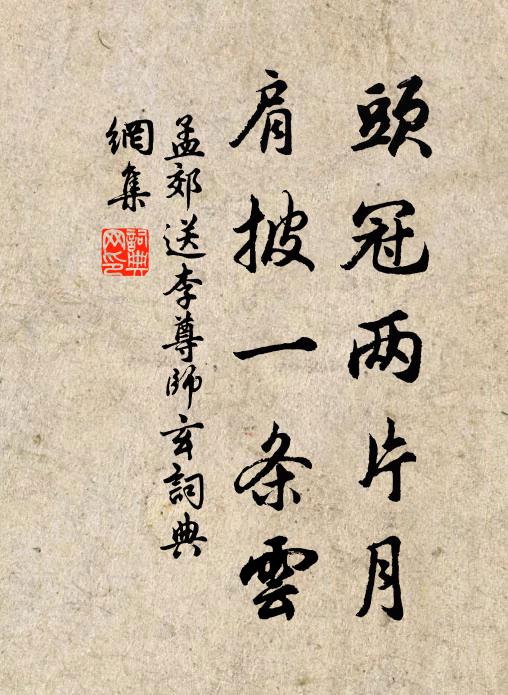 頭冠两片月
肩披一条雲
孟郊送李尊師玄詞典
網集
詞典
网印